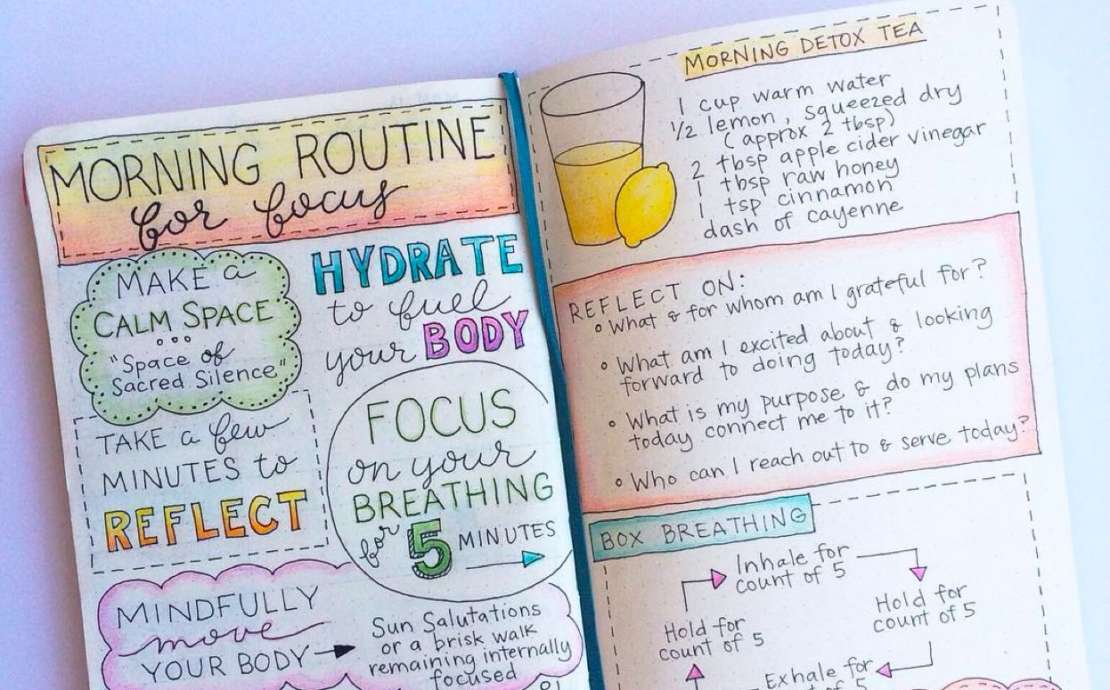 MORNING ROUTINE
for focus
MAKE a
CALM SPACE
"Space of
Sacred Silence"
HYDRATE
to fuel
your BODY
TAKE a few
MINUTES to
REFLECT
FOCUS
on your
BREATHING
for 5 MINUTES
MINDFULLY
move
YOUR BODY
Sun Salutations
or a brisk walk
remaining internally
focused
MORNING DETOX TEA
1 cup warm water
1/2 lemon, squeezed dry
(approx 2 tbsp)
2 tbsp apple cider vinegar
1 tbsp raw honey
1 tsp cinnamon
dash of cayenne
REFLECT ON:
• What & for whom am I grateful for?
• What am I excited about & looking
forward to doing today?
• What is my purpose & do my plans
today connect me to it?
• Who can I reach out to & serve today?
BOX BREATHING
Inhale for
count of 5
Hold for
count of 5
Exhale for
count of 5
Hold for
count of 5